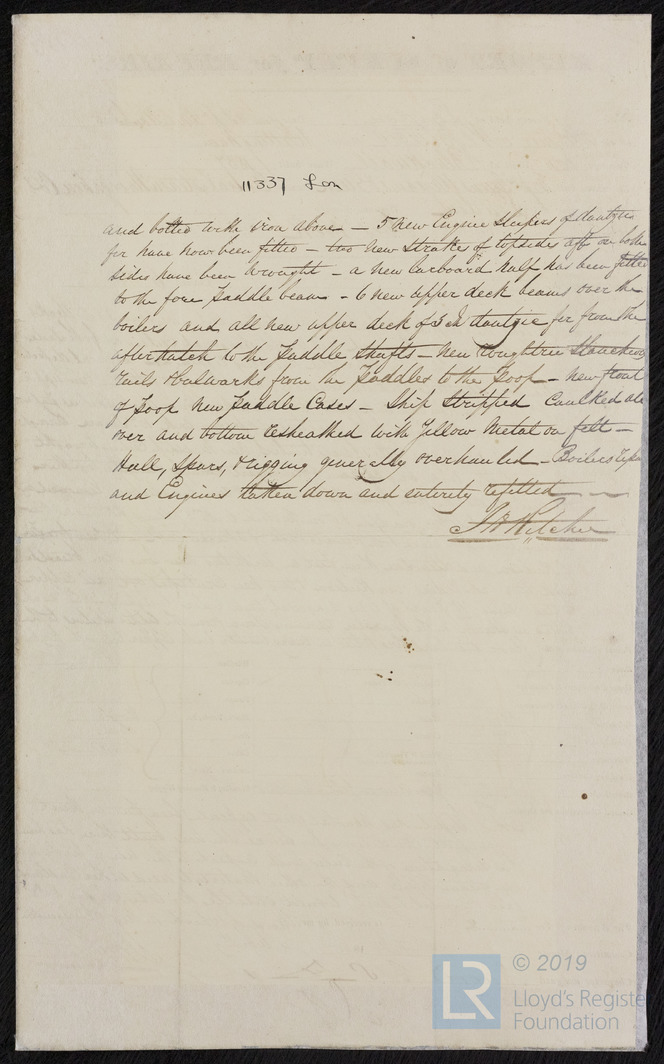 11337 Lon
and bolted with iron above – 5 New Engine Sleepers of dantzic
fir have now been fitted – two new Strakes of topsides aft on both
sides have been wrought – a new larboard half has been fitted
to the fore Paddle beam – 6 new upper deck beams over the
boilers and all new upper deck of 3 in dantzic fir from the
afterhatch to the Paddle Shafts – new roughtree Stancheons
rails & bulwarks from the Paddles to the Poop – new front
of Poop New Paddle Cases – Ship Stripped Caulked all
over and bottom resheathed with Yellow Metal on felt –
Hull, Spars, & rigging generally overhauled – Boilers
and Engines taken down and entirely refitted
Pitcher
© 2019
LR
Lloyd's Registe
Foundation